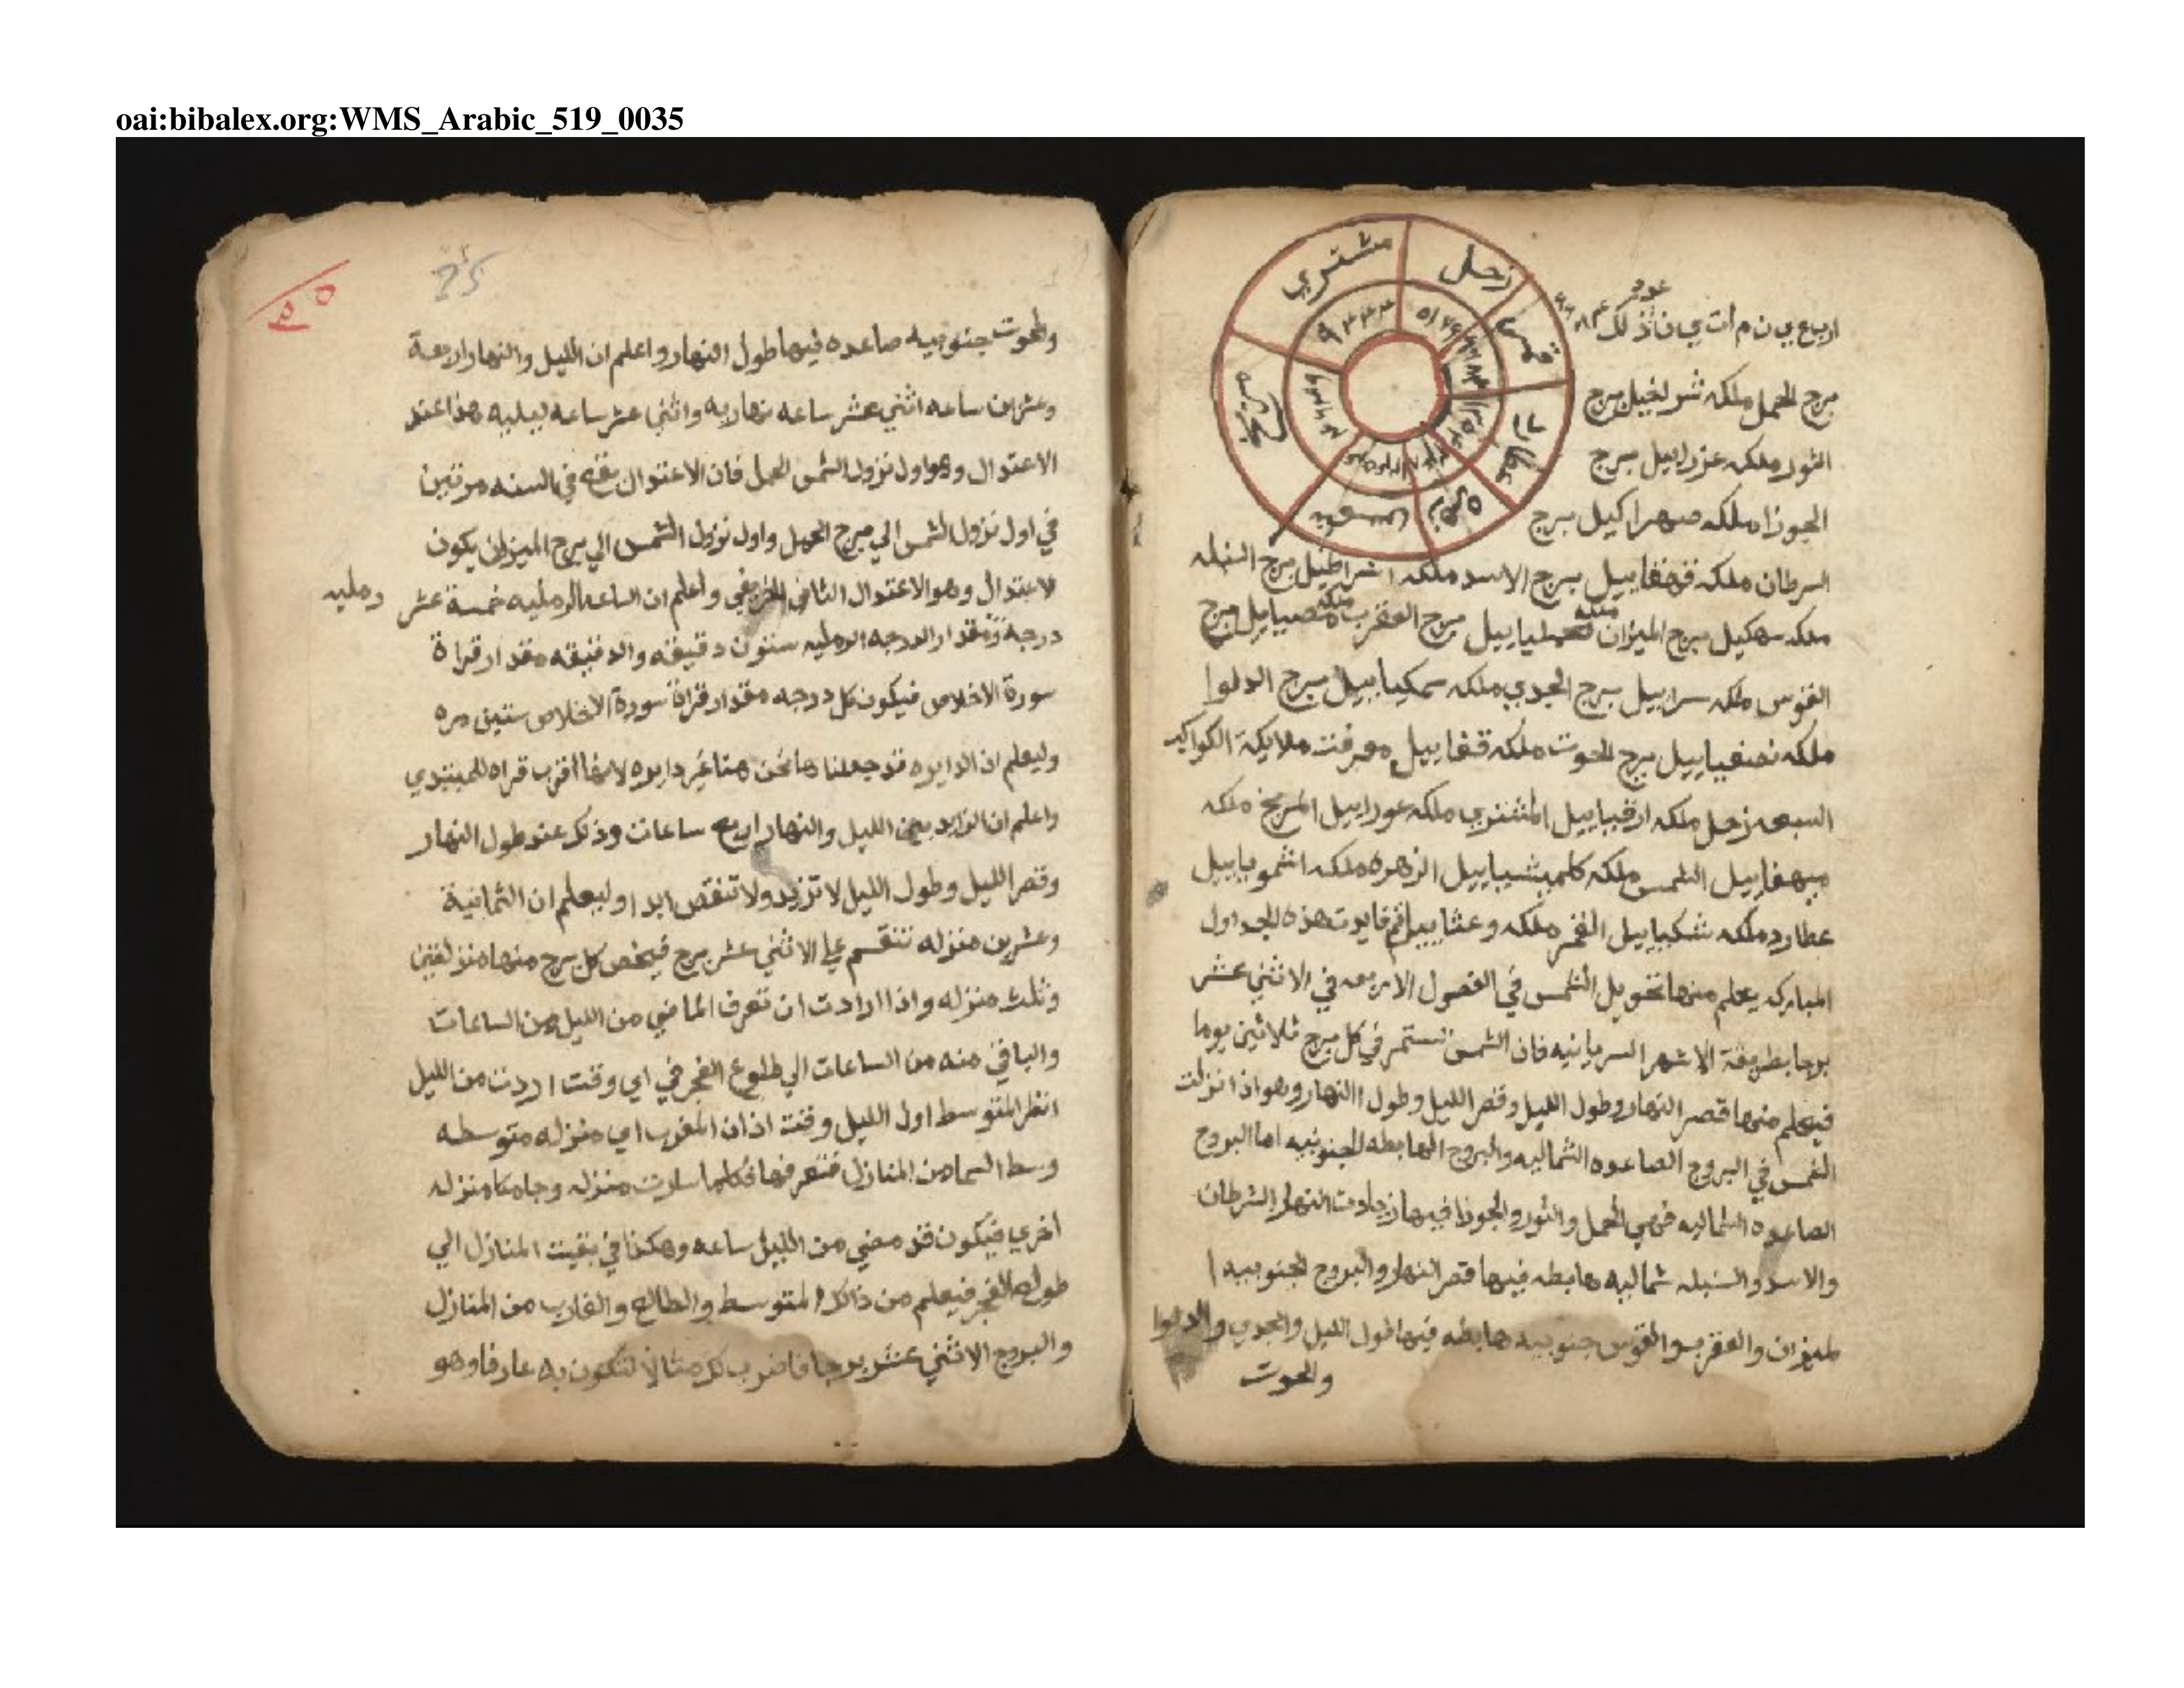 oai:bibalex.org:WMS_Arabic_519_0035
زحل
قمر
عطارد
زهره
شمس
مريخ
مشتري
عدد
اربع ي ن م ات ي ن اذلك
برج الحمل ملكه برج
الثور ملكه عزراييل برج
الجوزا ملكه صهراكيل برج
السرطان ملكه برج الاسد ملكه برج السنبله
ملكه سهكيل برج الميزان ملكه برج العقرب ملكه برج
القوس ملكه سراييل برج الجدي ملكه سمكياييل برج الدلوا
ملكه برج الحوت ملكه قفاييل معرفت ملايكة الكواكب
السبعه زحل ملكه المشتري ملكه عوراييل المريخ ملكه
الشمس ملكه الزهره ملكه
عطارد ملكه القمر ملكه فايدت هذه الجداول
المباركه يعلم منها تحويل الشمس في الفصول الاربعه في الاثني عشر
برجا بطريقة الاشهر السريانيه فان الشمس تستمر في كل برج ثلاثين يوما
فيعلم منها قصر النهار وطول الليل وقصر الليل وطول االنهار وهو اذا نزلت
الشمس في البروج الصاعده الشماليه والبروج الهابطه الجنوبيه اما البروج
الصاعده الشماليه فهي الحمل والثور والجوزا فيها زيادت النهار السرطان
والاسد والسنبله شماليه هابطه فيها قصر النهار والبروج الجنوبيه ا
لميزان والعقرب والقوس جنوبيه هابطه فيها طول الليل والجدي والدلوا
والحوت
25
والحوت جنوبيه صاعده فيها طول النهار واعلم ان الليل والنهار اربعة
وعشرين ساعه اثني عشر ساعه نهاريه واثني عشر ساعه ليليه هذا عند
الاعتدال وهو اول نزول الشمس الحمل فان الاعتدال يقع في السنه مرتين
في اول نزول الشمس الي برج الحمل واول نزول الشمس الي برج الميزان يكون
الاعتدال وهو الاعتدال الثاني الخريفي واعلم ان الساعه الرمليه خمسة عشر رمليه
درجة ومقدار الدرجه الرمليه ستون دقيقه والدقيقه مقدار قراة
سورة الاخلاص فيكون كل درجه مقدار قراة سورة الاخلاص ستين مره
وليعلم ان الدايره قد جعلناها نحن هنا غير دايره لانها اقرب قراه للمبتدي
واعلم ان الزايد بين الليل والنهار اربع ساعات وذلك عند طول النهار
وقصر الليل وطول الليل لا تزيد ولا تنقص ابدا وليعلم ان الثمانية
وعشرين منزله تنقسم علي الاثني عشر برج فيخص كل برج منها منزلتين
وثلث منزله واذا ارادت ان تعرف الماضي من الليل من الساعات
والباقي منه من الساعات الي طلوع الفجر في اي وقت اردت من الليل
انظر المتوسط اول الليل وقت اذان المغرب اي منزله متوسطه
وسط السما من المنازل فتعرفها فكلما سارت منزله وجا مكا منزله
اخري فيكون قد مضي من الليل ساعه وهكذا في بقيت المنازل الي
طلوع الفجر فيعلم من ذالك المتوسط والطالع والغارب من المنازل
والبروج الاثني عشر برجا فاضرب لك مثالا لتكون به عارفا وهو